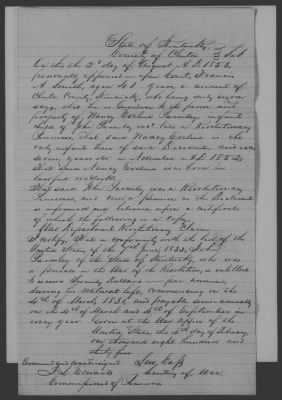 State of Kentucky
County of Clinton } Sct
On this the 2d day of August A.D. 1853,
personally appeared in open Court, Francis
A. Smith, aged 41 years, a resident of
Clinton County, Kentucky, who being duly sworn
says, that he is Guardian to the person and
property of Nancy Evaline Parmley, infant
child of John Parmley
Pensioner, that said Nancy Evaline is the
only infant heir of said Decedent, and was
seven years old in November A.D. 1852,
that said Nancy Evaline was born in
lawful wedlock.
That said John Parmley was a Revolutionary
Pensioner, and drew a pension as the Declarant
is informed and believes upon a certificate
of which the following is a copy.
War Department Revolutionary Claim
I certify that in conformity with the law of the
United States of the 7th June 1832, John
Parmley of the State of Kentucky who was
a private in the War of the Revolution, is entitled
to receive Dollars per annum,
during his natural life, commencing on the
4th of March 1831, and payable semi-annually
on the 4th of March and 4th of September in
every year. Given at the War Office of the
United States, this 4th day of February
one thousand eight hundred and
thirty five
Examined and Countersigned Lew Cass
J. L. Edwards Secretary of War.
Commissioner of Pensions